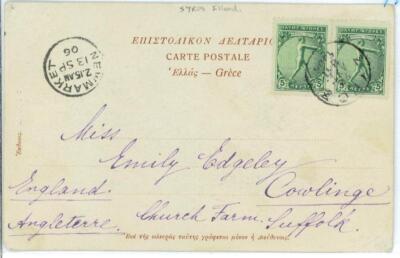 SYROS Island.
ΕΠΙΣΤΟΛΙΚΟΝ ΔΕΛΤΑΡΙΟ
CARTE POSTALE
Ἑλλάς — Grèce
NEWMARKET
2.15 AM
13 SP
06
Miss
Emily Edgeley
England. Cowlinge
Angleterre. Church Farm. Suffolk.
Ἐπὶ τῆς πλευρᾶς ταύτης γράφεται μόνον ἡ διεύθυνσις.